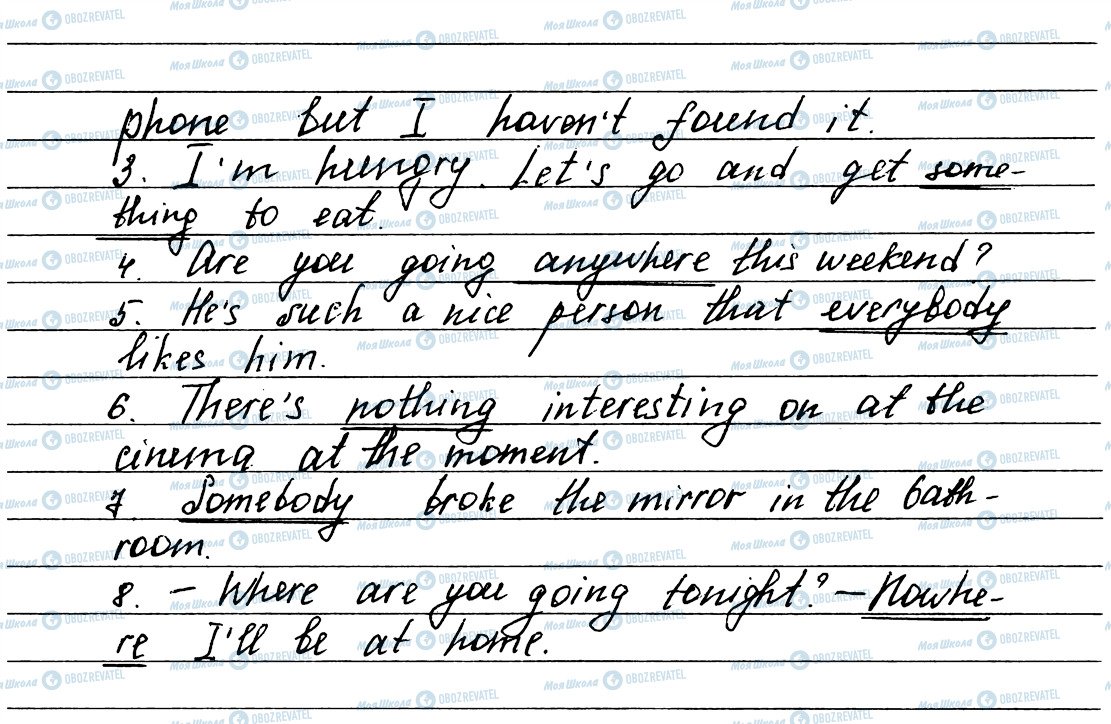 phone but I haven't found it.
3. I'm hungry. Let's go and get some-
thing to eat.
4. Are you going anywhere this weekend?
5. He's such a nice person that everybody
likes him.
6. There's nothing interesting on at the
cinema at the moment.
7. Somebody broke the mirror in the bath-
room.
8. – Where are you going tonight? – Nowhe-
re I'll be at home.